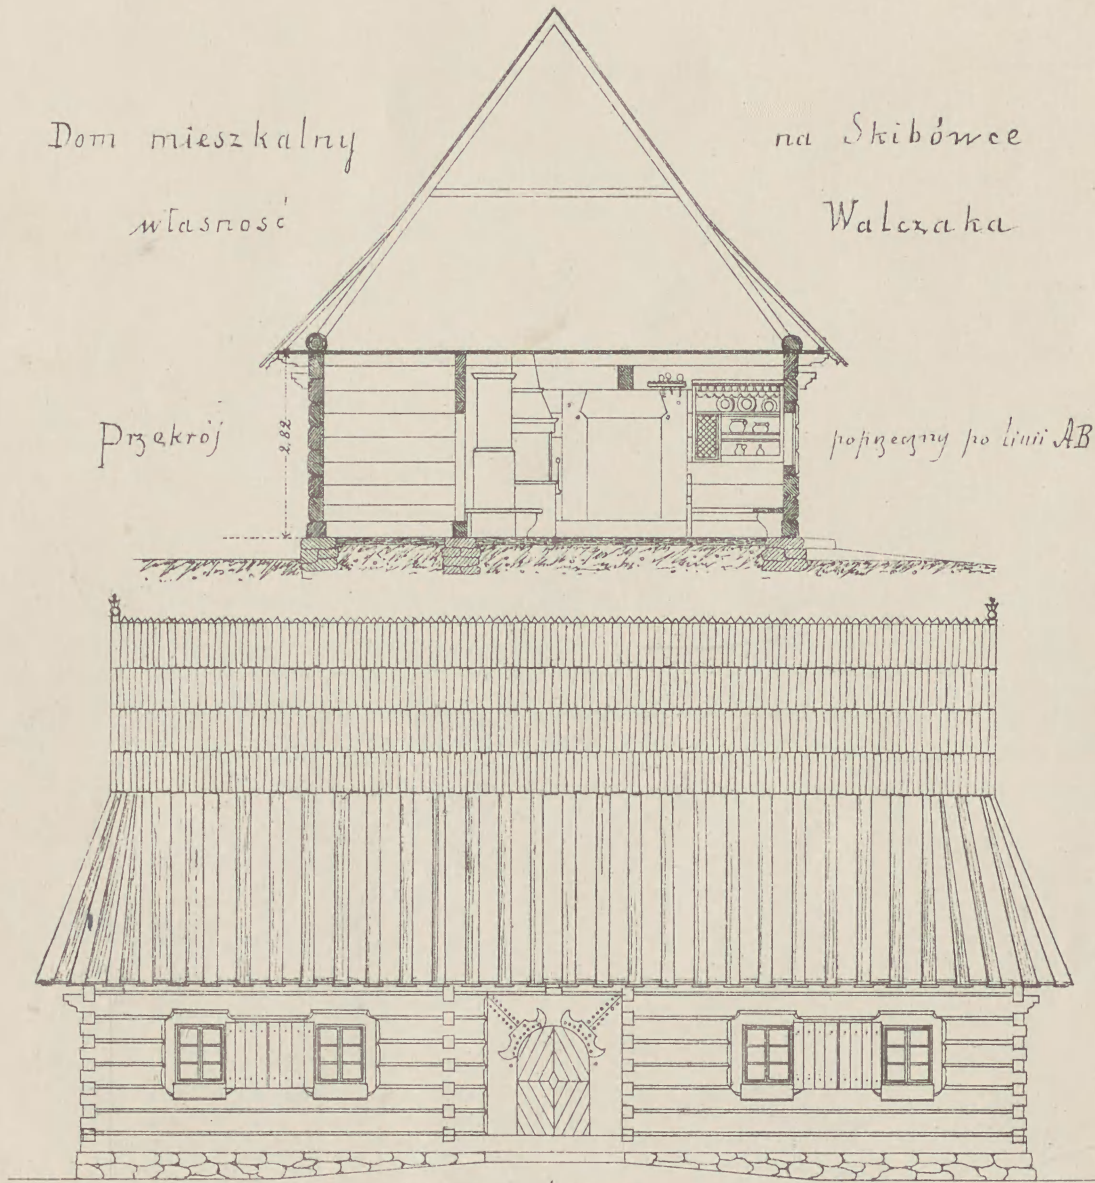 Dom mieszkalny na Skibówce
własność Walczaka
Przekrój poprzeczny po linii AB
2.82